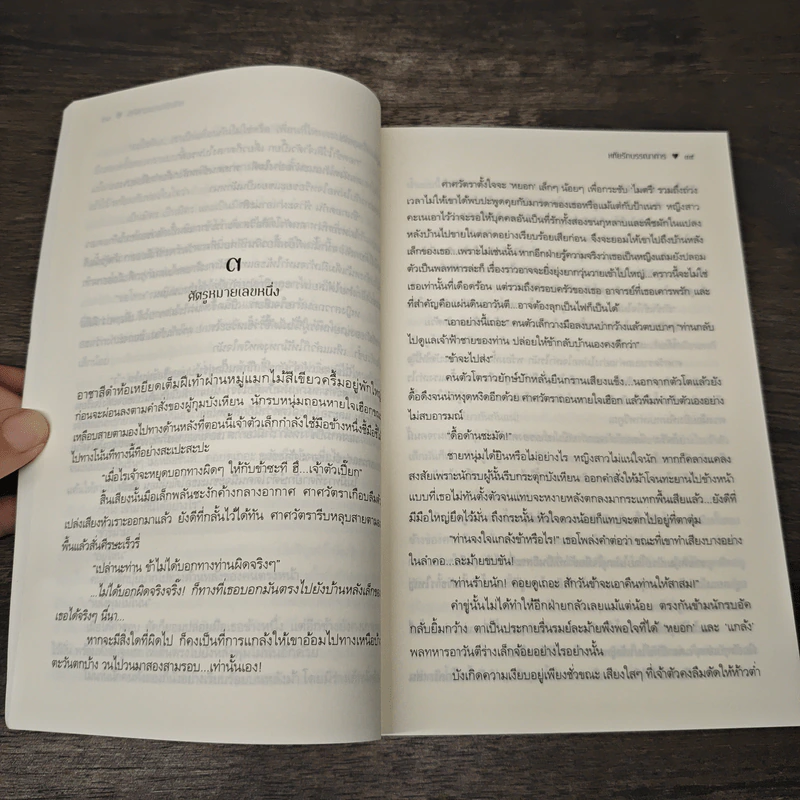 ๓
ศัตรูหมายเลขหนึ่ง
อาชาสีดำห้อเหยียดเต็มฝีเท้าผ่านหมู่แมกไม้สีเขียวครึ้มอยู่พักใหญ่
ก่อนจะผ่อนลงตามคำสั่งของผู้กุมบังเหียน นักรบหนุ่มถอนหายใจเฮือก
เหลือบสายตามองไปทางด้านหลังที่ตอนนี้เจ้าตัวเล็กกำลังใช้มือข้างหนึ่งชี้มือ
ไปทางโน้นทีทางนี้ทีอย่างสะเปะสะปะ
“เมื่อไรเจ้าจะหยุดบอกทางผิดๆ ให้กับข้าซะที ฮึ...เจ้าตัวเปี๊ยก”
สิ้นเสียงนั้นมือเล็กพลันชะงักค้างกลางอากาศ ศาศวัตราเกือบลืมตัว
เปล่งเสียงหัวเราะออกมาแล้ว ยังดีที่กลั้นไว้ได้ทัน ศาศวัตรารีบหลุบสายตามอง
พื้นแล้วสั่นศีรษะเร็วรี่
“เปล่านะท่าน ข้าไม่ได้บอกทางท่านผิดจริงๆ”
...ไม่ได้บอกผิดจริงจริ๊ง! ก็ทางที่เธอบอกมันตรงไปยังบ้านหลังเล็กของ
เธอได้จริงๆ นี่นา...
หากจะมีสิ่งใดที่ผิดไป ก็คงเป็นที่การแกล้งให้เขาอ้อมไปทางเหนือบ้าง
ตะวันตกบ้าง วนไปวนมาสองสามรอบ...เท่านั้นเอง!
หทัยรักบรรณาการ ♥ ๓๕
ศาศวัตราตั้งใจจะ ‘หยอก’ เล็กๆ น้อยๆ เพื่อกระชับ ‘ไมตรี’ รวมถึงถ่วง
เวลาไม่ให้เขาได้พบปะพูดคุยกับมารดาของเธอหรือแม้แต่กับป้าเนรา หญิงสาว
คะเนเอาไว้ว่าจะรอให้บุคคลอันเป็นที่รักทั้งสองขนกุหลาบและพืชผักในแปลง
หลังบ้านไปขายในตลาดอย่างเรียบร้อยเสียก่อน จึงจะยอมให้เขาไปถึงบ้านหลัง
เล็กของเธอ...เพราะไม่เช่นนั้น หากอีกฝ่ายรู้ความจริงว่าเธอเป็นหญิงแถมยังปลอม
ตัวเป็นพลทหารล่ะก็ เรื่องราวอาจจะยิ่งยุ่งยากวุ่นวายเข้าไปใหญ่...คราวนี้จะไม่ใช่
เธอเท่านั้นที่เดือดร้อน แต่รวมถึงครอบครัวของเธอ อาจารย์ที่เธอเคารพรัก และ
ที่สำคัญคือแผ่นดินอาวันตี...อาจต้องลุกเป็นไฟก็เป็นได้
“เอาอย่างนี้เถอะ” คนตัวเล็กวางมือลงบนบ่ากว้างแล้วตบเบาๆ “ท่านกลับ
ไปดูแลเจ้าฟ้าชายของท่าน ปล่อยให้ข้ากลับบ้านเองคงดีกว่า”
“ข้าจะไปส่ง”
คนตัวโตราวยักษ์ปักหลั่นยืนกรานเสียงแข็ง...นอกจากตัวโตแล้วยัง
ดื้อดึงจนน่าหงุดหงิดอีกด้วย ศาศวัตราถอนหายใจเฮือก แล้วพึมพำกับตัวเองอย่าง
ไม่สบอารมณ์
“ดื้อด้านชะมัด!”
ชายหนุ่มได้ยินหรือไม่อย่างไร หญิงสาวไม่แน่ใจนัก หากก็คลางแคลง
สงสัยเพราะนักรบผู้นั้นรีบกระตุกบังเหียน ออกคำสั่งให้ม้าโจนทะยานไปข้างหน้า
แบบที่เธอไม่ทันตั้งตัวจนแทบจะหงายหลังตกลงมากระแทกพื้นเสียแล้ว...ยังดีที่
มีมือใหญ่ยึดไว้มั่น ถึงกระนั้น หัวใจดวงน้อยก็แทบจะตกไปอยู่ที่ตาตุ่ม
“ท่านจงใจแกล้งข้าหรือไร!” เธอโพล่งคำต่อว่า ขณะที่เขาทำเสียงบางอย่าง
ในลำคอ...ละม้ายขบขัน!
“ท่านร้ายนัก! คอยดูเถอะ สักวันข้าจะเอาคืนท่านให้สาสม!”
คำขู่นั้นไม่ได้ทำให้อีกฝ่ายกลัวเลยแม้แต่น้อย ตรงกันข้ามนักรบอัค
กลับยิ้มกว้าง ตาเป็นประกายรื่นรมย์ละม้ายพึงพอใจที่ได้ ‘หยอก’ และ ‘แกล้ง’
พลทหารอาวันตีร่างเล็กจ้อยอย่างไรอย่างนั้น
บังเกิดความเงียบอยู่เพียงชั่วขณะ เสียงใสๆ ที่เจ้าตัวคงลืมดัดให้ห้าวต่ำ